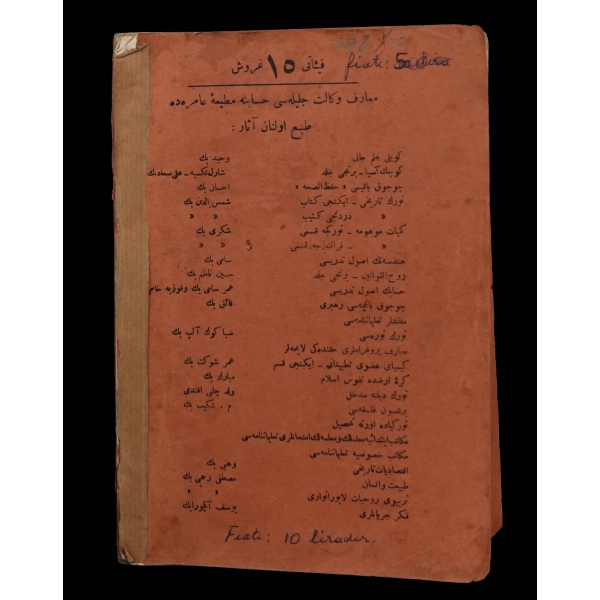 فیئاتی ١٥ غروش fiati: 5
معارف وکالت جلیله‌سی حسابنه مطبعهٔ عامره‌ده
طبع اولنان آثار :
کویلی علم حالی وحید بك
کوچك آسیا ـ برنجی جلد شارل تکسیه ـ علی سعاد بك
چوجوق باقیمی « حفظ الصحه » احسان بك
تورك تاریخی ـ ایکنجی کتاب شمس الدین بك
« دردنجی کتاب « «
کمیات موهومه ـ تورکجه قسمی شکری بك
« ـ فرانسزجه قسمی « «
هندسه‌نك اصول تدریسی سامی بك
روح القوانین ـ برنجی جلد حسین ناظم بك
حسابك اصول تدریسی عمر سامی بك وفوزیه خانم
چوجوق باغچه‌سی رهبری فائق بك
مفتشلر تعلیماتنامه‌سی
تورك توره‌سی ضیا کوك آلپ بك
معارف پروغراملری حقنده‌کی لایحه‌لر
کیمیای عضوی تطبیقاتی ـ ایکنجی قسم عمر شوکت بك
کرهٔ ارضده نفوس اسلام مبارك بك
تورك دیلنه مدخل ولد چلبی افندی
برغسون فلسفه‌سی م . شکیب بك
تورکیاده اورته تحصیل
مکاتب ابتدائیه معلملك ومعلمه‌لك امتحانلری تعلیماتنامه‌سی
مکاتب خصوصیه تعلیماتنامه‌سی
اقتصادیات تاریخی وهبی بك
طبیعت وانسان مصطفی رحمی بك
تربیوی روحیات لابوراتواری « «
فکر جریانلری یوسف آقچورا بك
Fiati: 10 liradır.